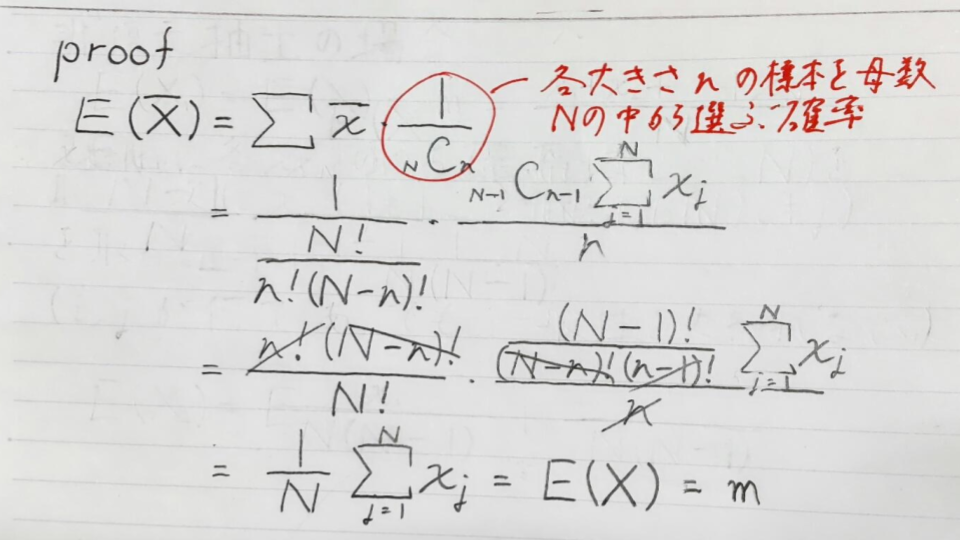 proof
E(X̅) = Σ x̅ · 1/NCn
各大きさnの標本を母数
Nの中から選ぶ確率
= 1/(N!/(n!(N-n)!)) · (N-1Cn-1 Σ_{j=1}^{N} xj)/n
= (n!(N-n)!)/N! · ((N-1)!/((N-n)!(n-1)!) Σ_{j=1}^{N} xj)/n
= 1/N Σ_{j=1}^{N} xj = E(X) = m